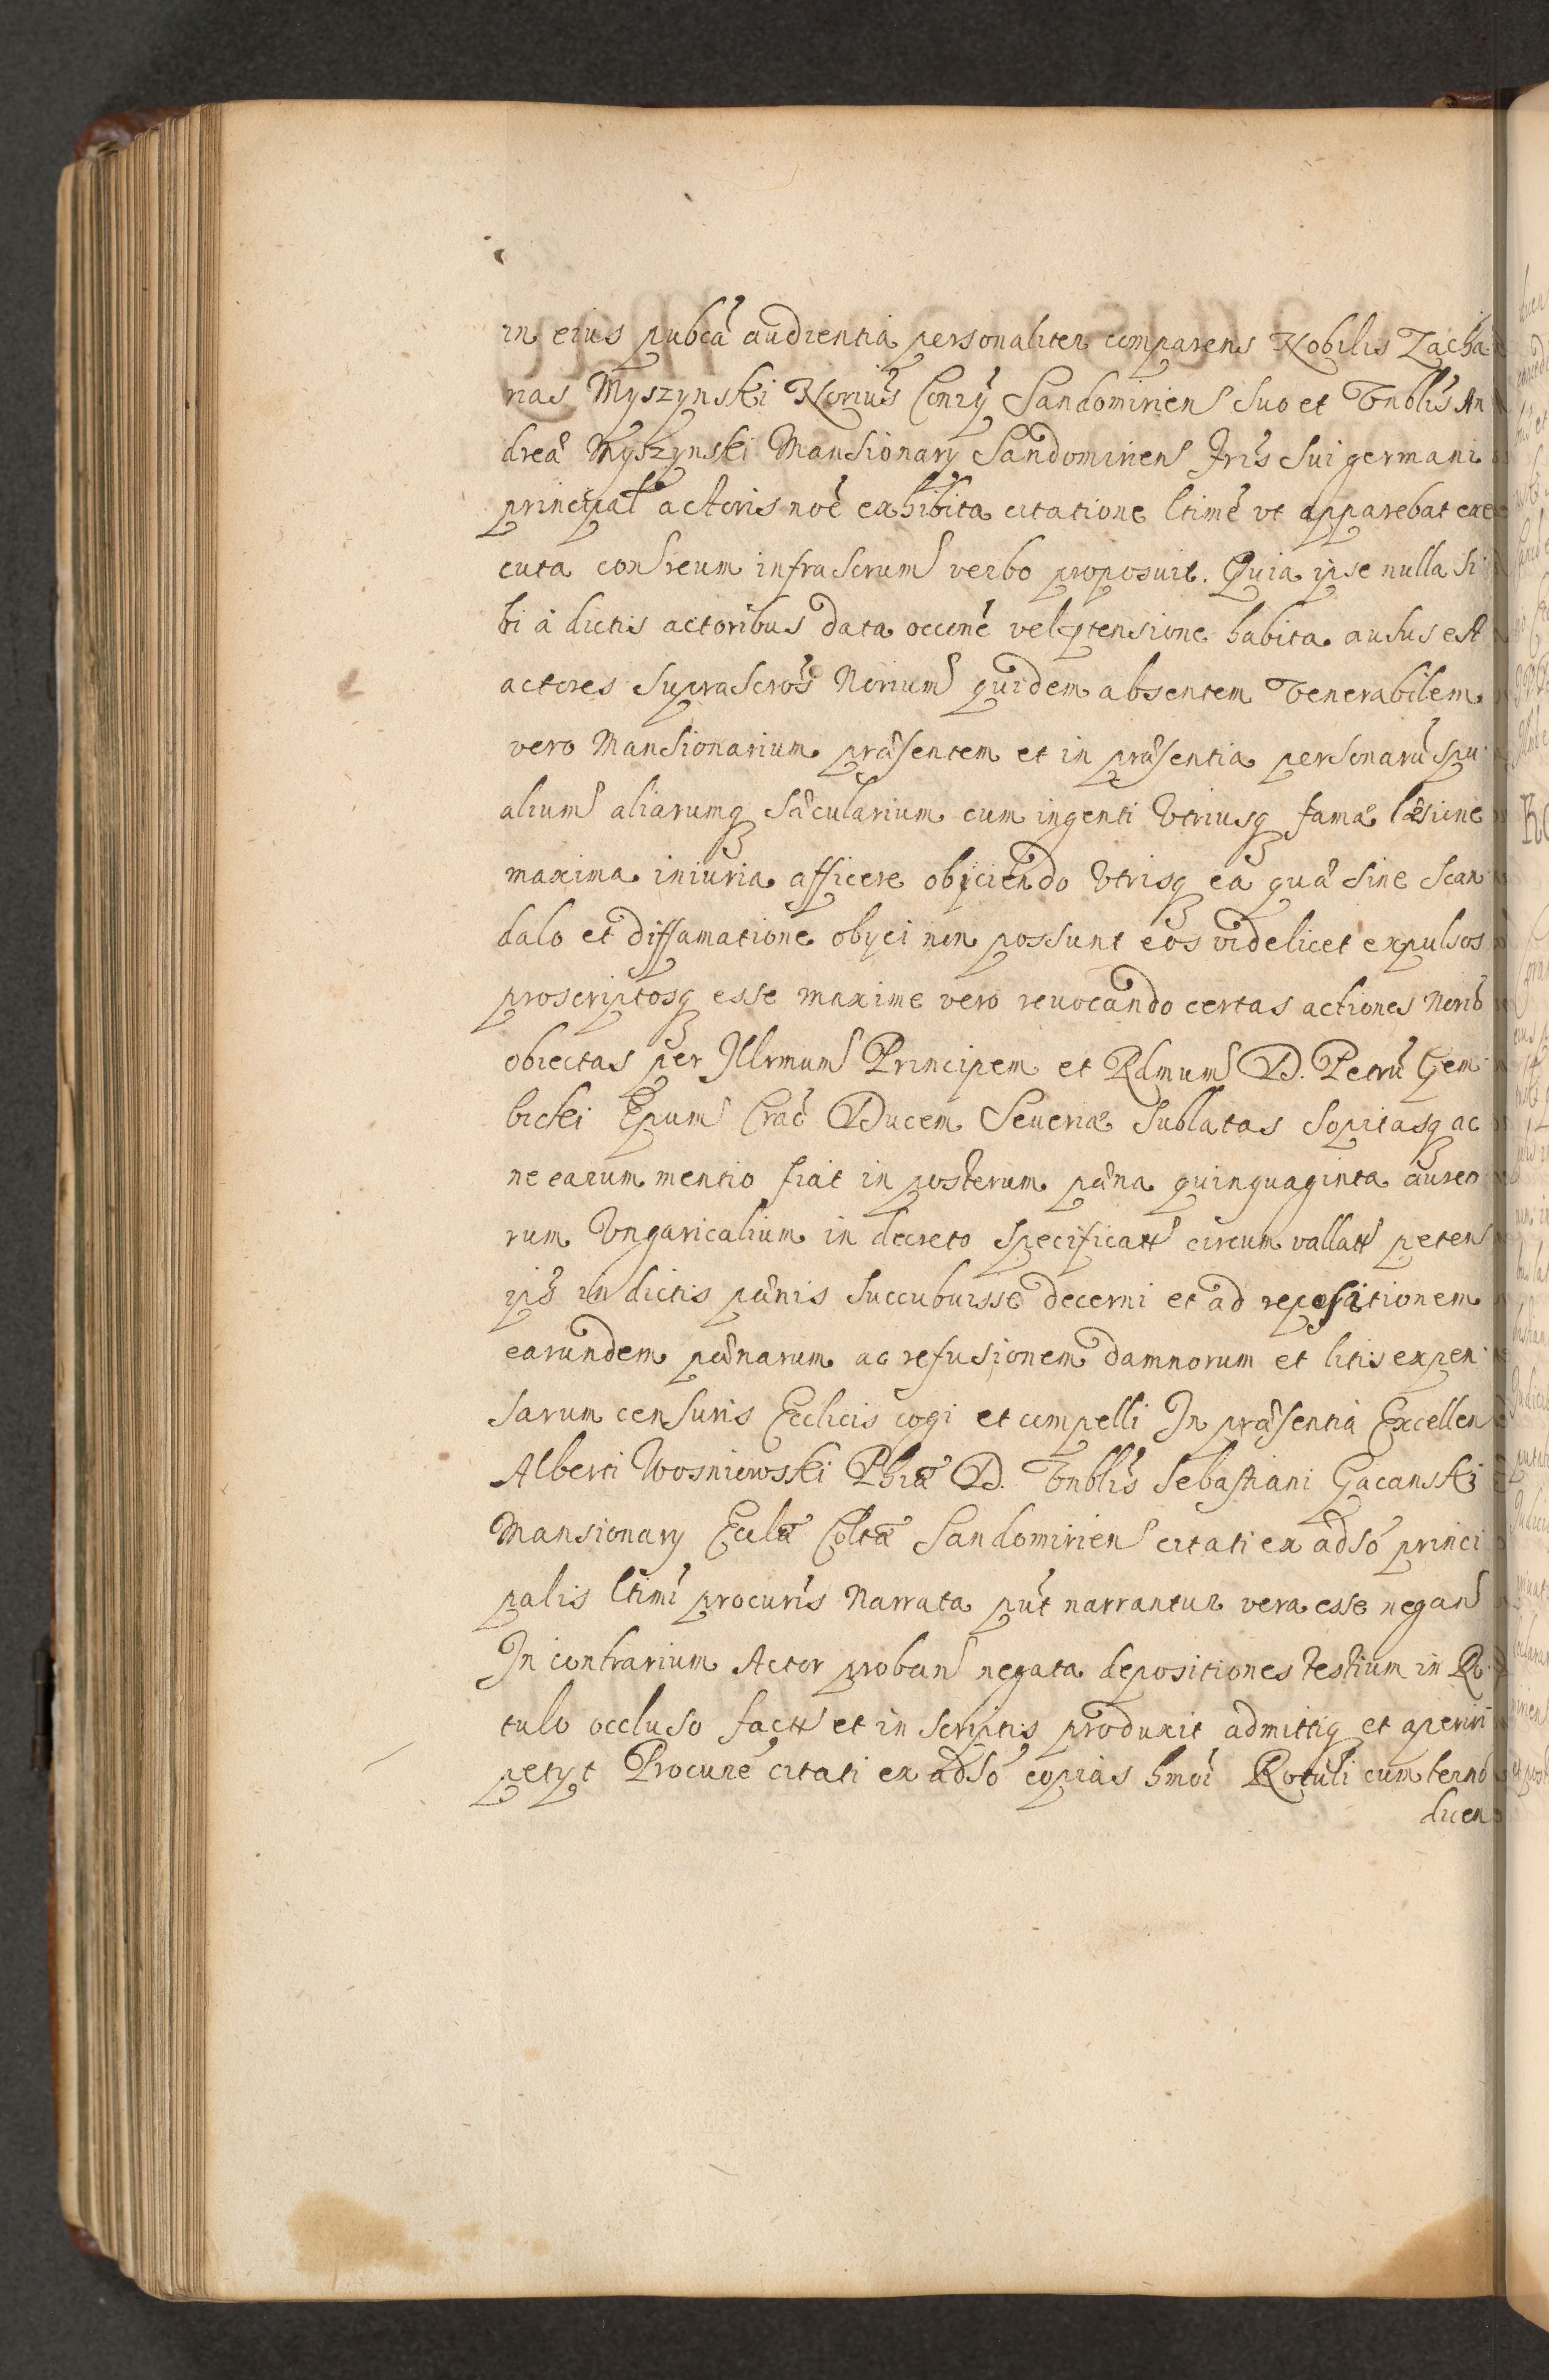 in eius pubca audientia personaliter comparens Nobilis Zacha
rias Myszynski Norius Conrÿ Sandomirien suo et Vnblis An
dreæ Myszynski Mansionarÿ Sandomirien fris sui germani
principal actoris noe exhibita citatione ltime vt apparebat exe
cuta con reum infrascrum verbo proposuit. Quia ipse nulla si
bi à dictis actoribus data occone vel ptensione habita ausus est
actores suprascros Norium quidem absentem Venerabilem
vero Mansionarium præsentem et in præsentia personaru spu
alium aliarumq sæcularium cum ingenti Vtriusq famæ læsione
maxima iniuria afficere obÿciendo Vtrisq ea quæ sine scan
dalo et diffamatione obÿci non possunt eos videlicet expulsos
proscriptosq esse maxime vero reuocando certas actiones Norio
obiectas per Illrmum Principem et Rdmum D. Petru Gem
bicki Epum Crac Ducem Seueriæ sublatas sopitasq ac
ne earum mentio fiat in posterum pæna quinquaginta aureo
rum Vngaricalium in decreto specificatt circum vallatt peten
ips in dictis pænis succubuisse decerni et ad repositionem
earundem pænarum ac refusionem damnorum et litis expen
sarum censuris Ecclicis cogi et compelli In præsentia Excellen
Alberti Wosniowski Phiæ D. Vnblis Sebastiani Gacanski
Mansionarÿ Eccliæ Coltæ Sandomirien citati ex adso princi
palis ltimi procuris Narrata put narrantur vera esse negan
In contrarium Actor proban negata depositiones testium in Ro
tulo occluso factt et in scriptis produxit admittiq et aperiri
petÿt Procure citati ex adso copias hmoi Rotuli cum termo
dicen